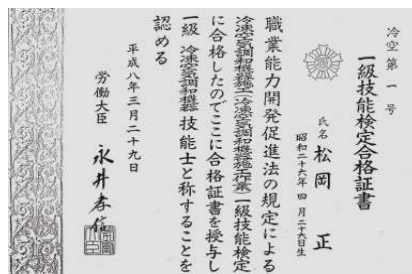 冷空第一号
一級技能検定合格証書
氏名 松岡 正
昭和二十六年 四月二十六日生
職業能力開発促進法の規定による
冷凍空気調和機器施工(冷凍空気調和機器施工作業)一級技能検定
に合格したのでここに合格証書を授与し
一級 冷凍空気調和機器 技能士と称することを
認める
平成八年三月二十九日
労働大臣 永井孝信